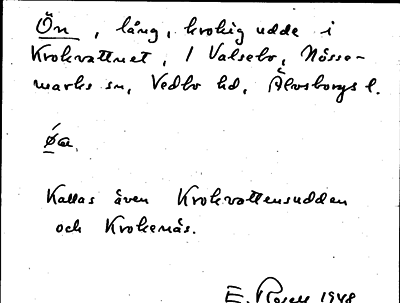 Ön, lång, krokig udde i
Krokvattnet, 1 Valsebo, Nösse-
marks sn, Vedbo hd, Älvsborgs l.
Kallas även Krokvattensudden
och Krokenäs.
E. Rosell 1948